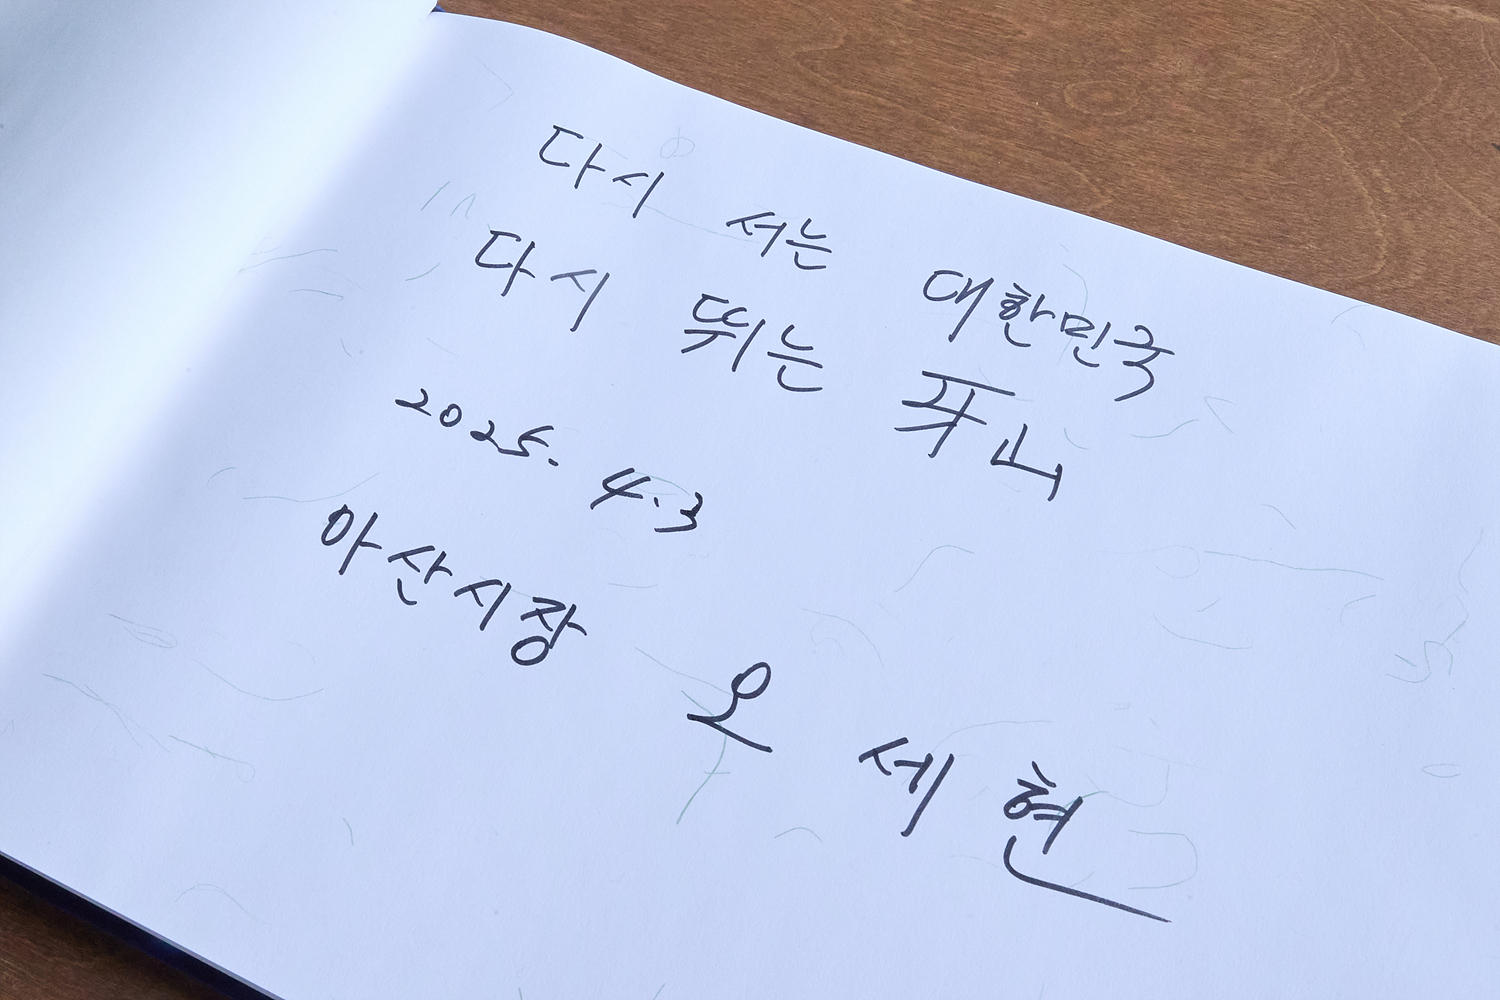 다시 서는 대한민국
다시 뛰는 牙山
2025. 4.3
아산시장 오세현